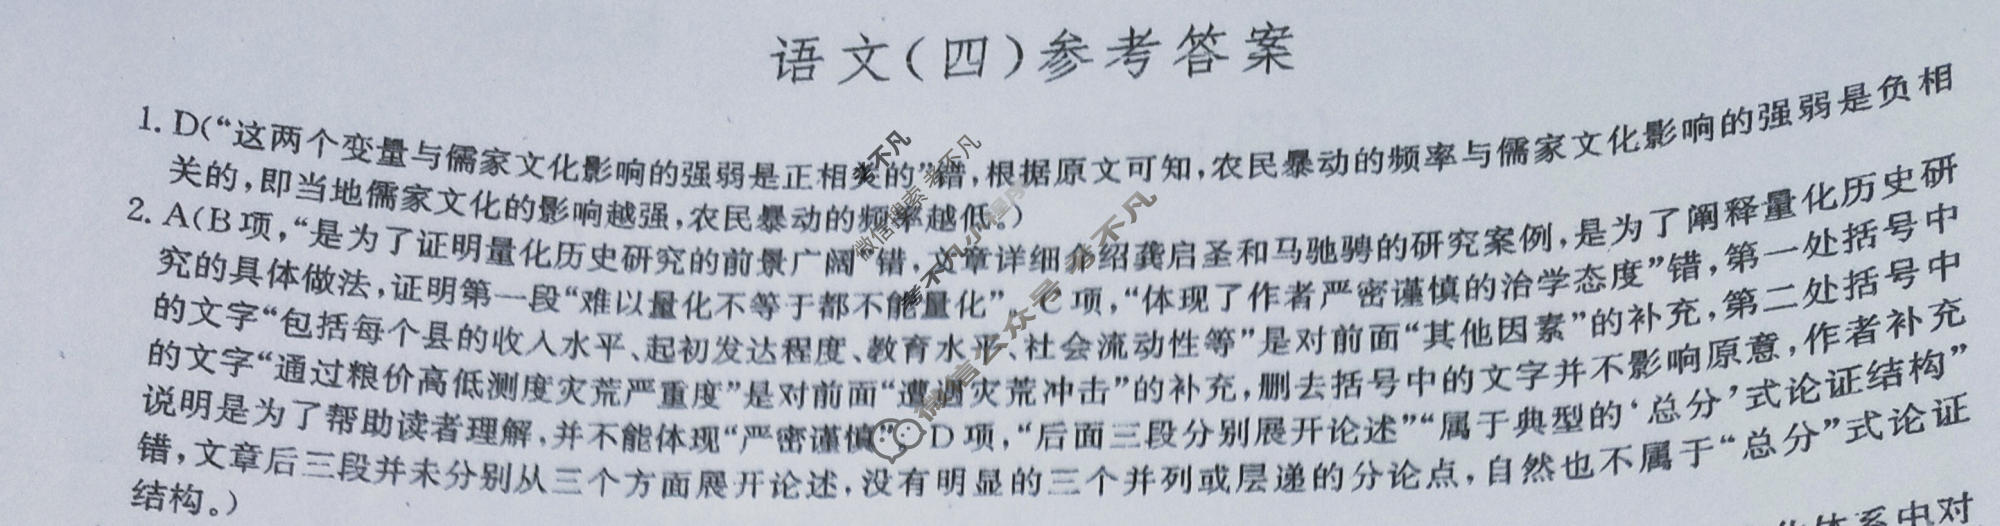 语文(四)参考答案
1. D(“这两个变量与儒家文化影响的强弱是正相关的”错,根据原文可知,农民暴动的频率与儒家文化影响的强弱是负相
关的,即当地儒家文化的影响越强,农民暴动的频率越低。)
2. A(B项,“是为了证明量化历史研究的前景广阔”错,文章详细介绍龚启圣和马驰骋的研究案例,是为了阐释量化历史研
究的具体做法,证明第一段“难以量化不等于都不能量化”。C项,“体现了作者严密谨慎的治学态度”错,第一处括号中
的文字“包括每个县的收入水平、起初发达程度、教育水平、社会流动性等”是对前面“其他因素”的补充,第二处括号中
的文字“通过粮价高低测度灾荒严重度”是对前面“遭遇灾荒冲击”的补充,删去括号中的文字并不影响原意,作者补充
说明是为了帮助读者理解,并不能体现“严密谨慎”。D项,“后面三段分别展开论述”“属于典型的‘总分’式论证结构”
错,文章后三段并未分别从三个方面展开论述,没有明显的三个并列或层递的分论点,自然也不属于“总分”式论证
结构。)
体系中对
考不凡
微信搜索考不凡
考不凡小程序
微信公众号:考不凡